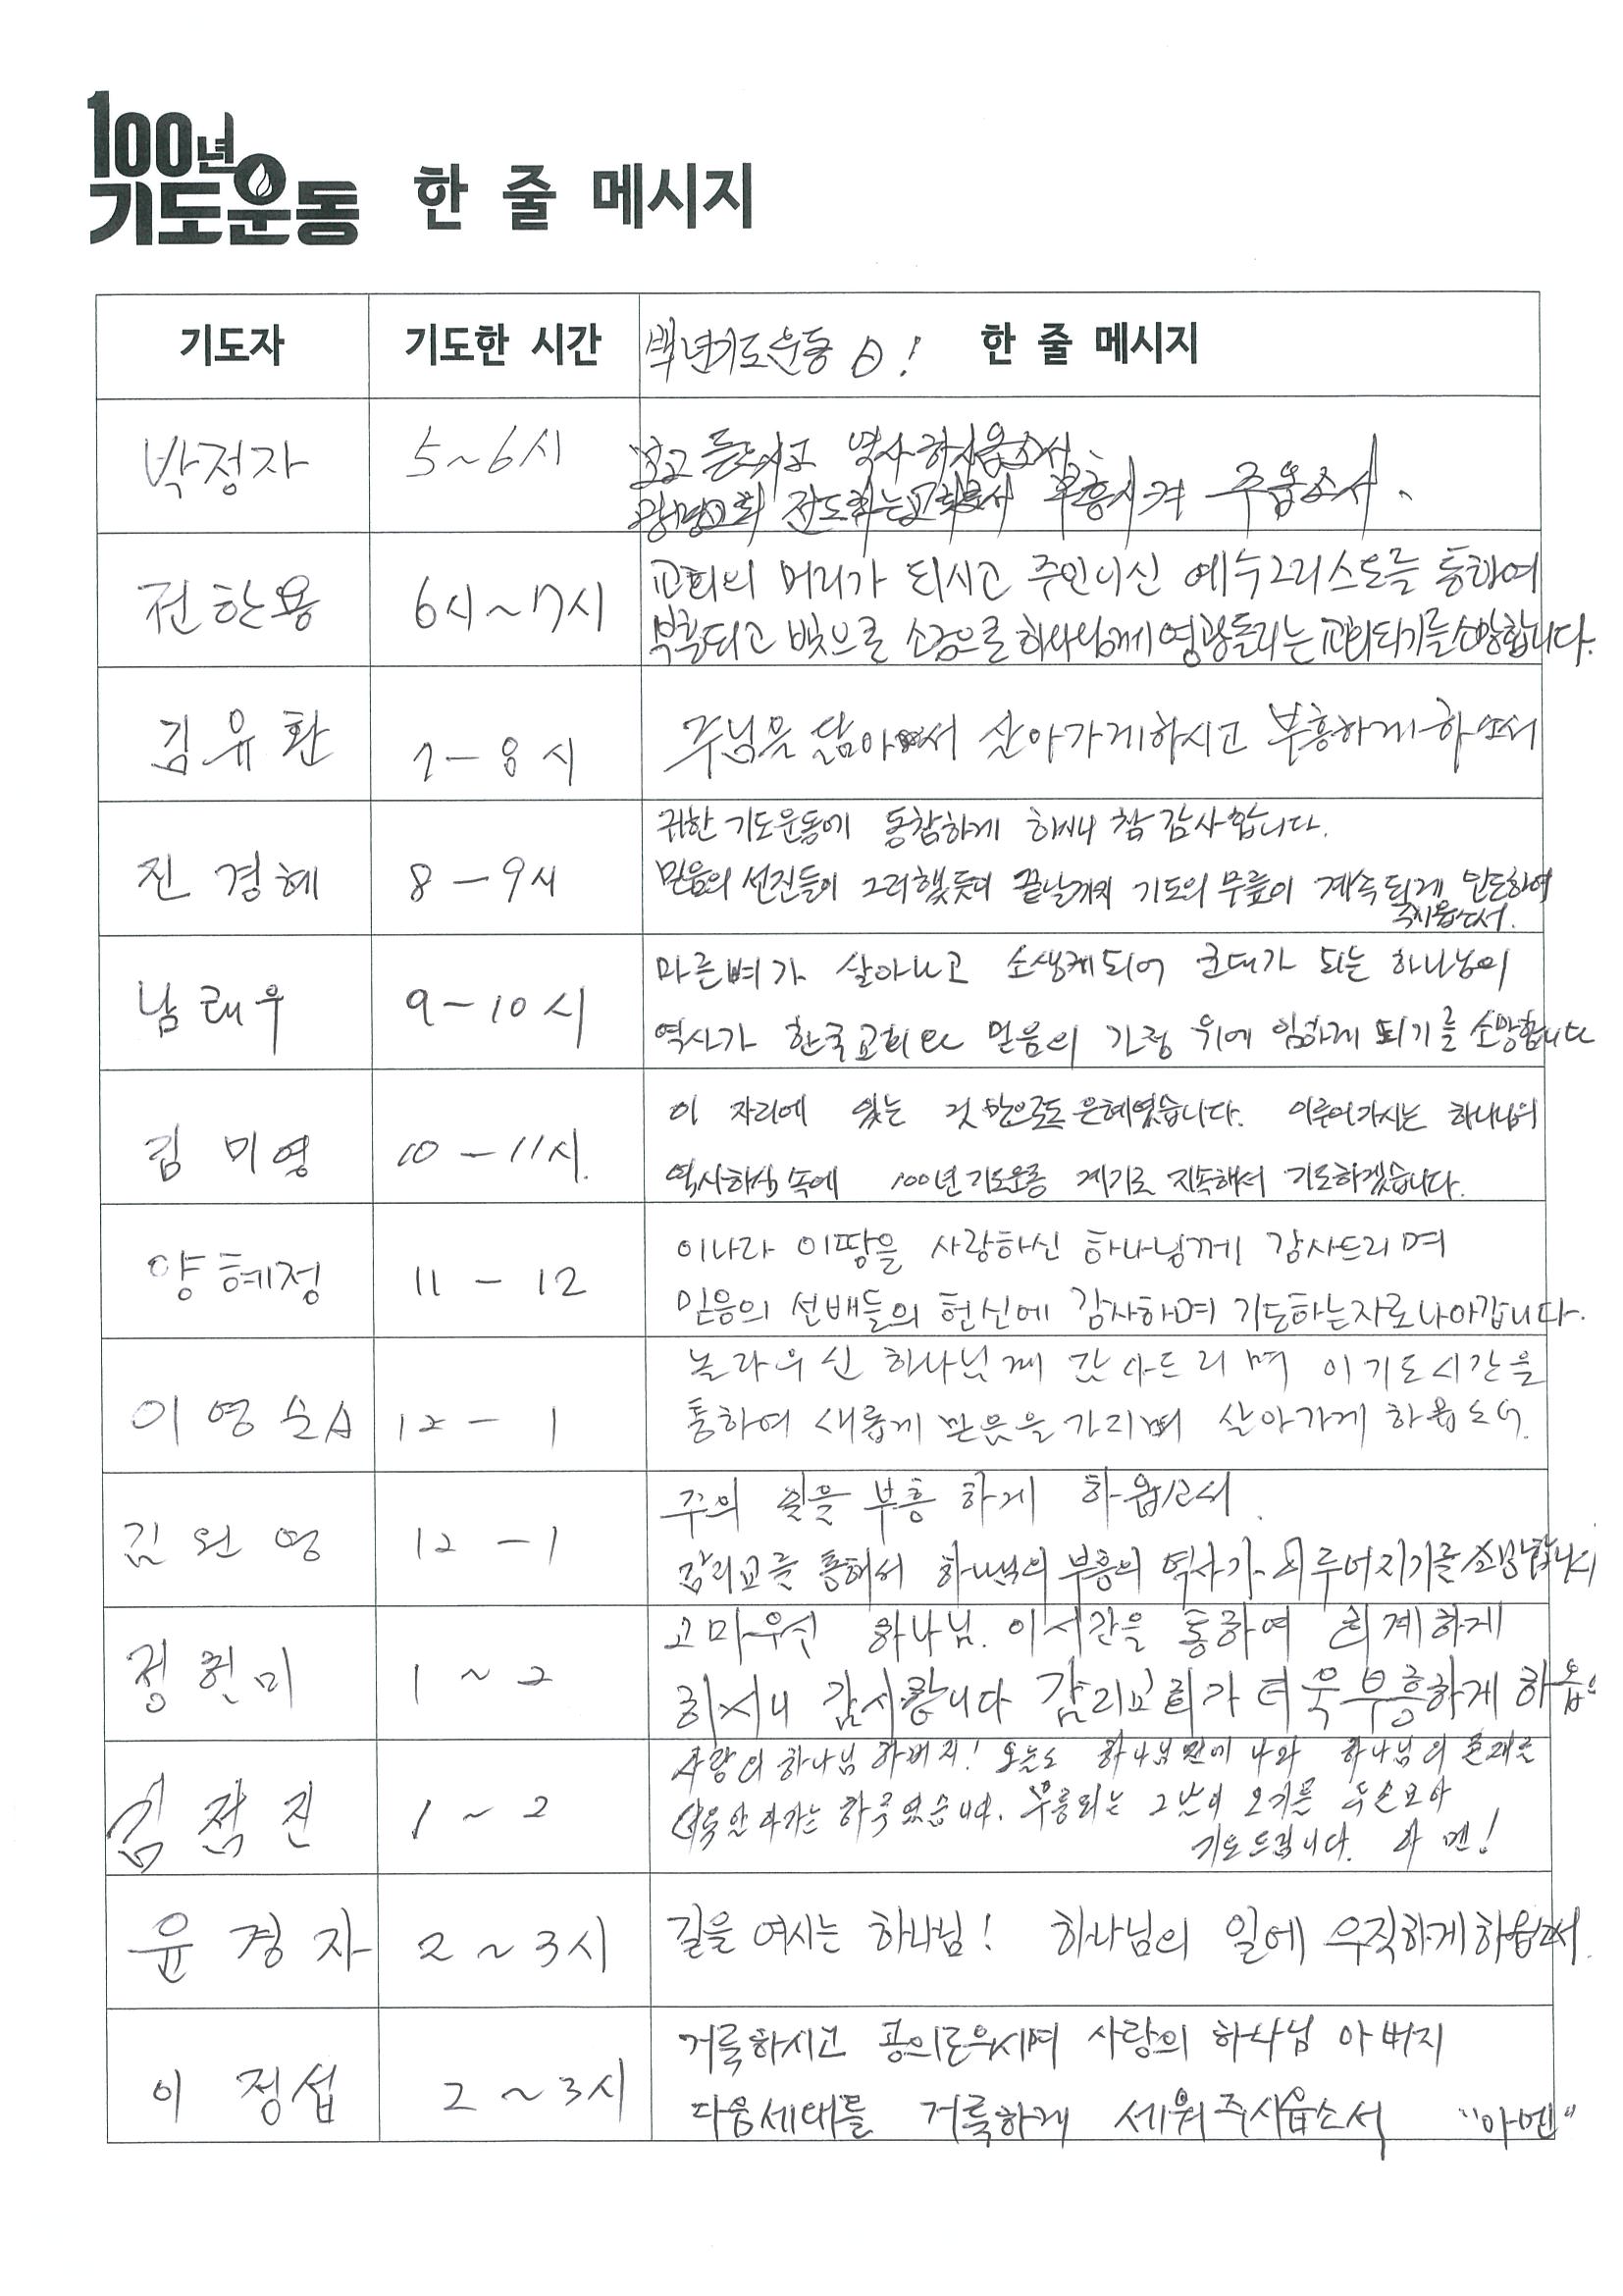 100년
기도운동 한 줄 메시지
기도자 기도한 시간 백년기도운동 한 줄 메시지
박정자 5~6시 보고 듣으시고 역사하시옵소서.
광명교회 전도하는교회로서 부흥시켜 주옵소서.
전한용 6시~7시 교회의 머리가 되시고 주인이신 예수그리스도를 통하여
부흥되고 빛으로 소금으로 하나님께영광돌리는교회되기를소망합니다.
김유환 7-8시 주님을 닮아 살아가게하시고 부흥하게하
귀한 기도운동에 동참하게 하시니 참 감사합니다.
진경혜 8-9시 믿음의 선진들이 그러했듯이 끝날까지 기도의 무릎이 계속되게 인도하여
주시옵소서.
남태우 9-10시 마른뼈가 살아나고 소생케되어 군대가 되는 하나님의
역사가 한국교회와 믿음의 가정 위에 임하게 되기를 소망합니다
김미영 10-11시. 이 자리에 있는 것 만으로도 은혜였습니다. 이루어가시는 하나님의
역사하심 속에 100년기도운동 계기로 지속해서 기도하겠습니다.
양혜정 11-12 이나라 이땅을 사랑하신 하나님께 감사드리며
믿음의 선배들의 헌신에 감사하며 기도하는자로나아갑니다.
이영순A 12-1 놀라우신 하나님께 감사드리며 이기도시간을
통하여 새롭게 믿음을 가리며 살아가게 하옵소서.
김원영 12-1 주의 일을 부흥 하게 하옵소서.
감리교를 통해서 하나님의 부흥의 역사가 이루어지기를소망합니다
정현미 1~2 고마우신 하나님. 이시간을 통하여 회계하게
하시니 감사합니다 감리교회가 더욱부흥하게 하옵
사랑의 하나님 아버지! 오늘도 하나님 나와 하나님의 존재를
김점진 1~2 더욱 알아가는 하루였습니다. 부흥되는 그날이 오기를 두손모아
기도드립니다. 아멘!
윤경자 2~3시 길을 여시는 하나님! 하나님의 일에 우직하게하옵소서.
이정섭 2~3시 거룩하시고 공의로우시며 사랑의 하나님 아버지
다음세대를 거룩하게 세워주시옵소서 "아멘"